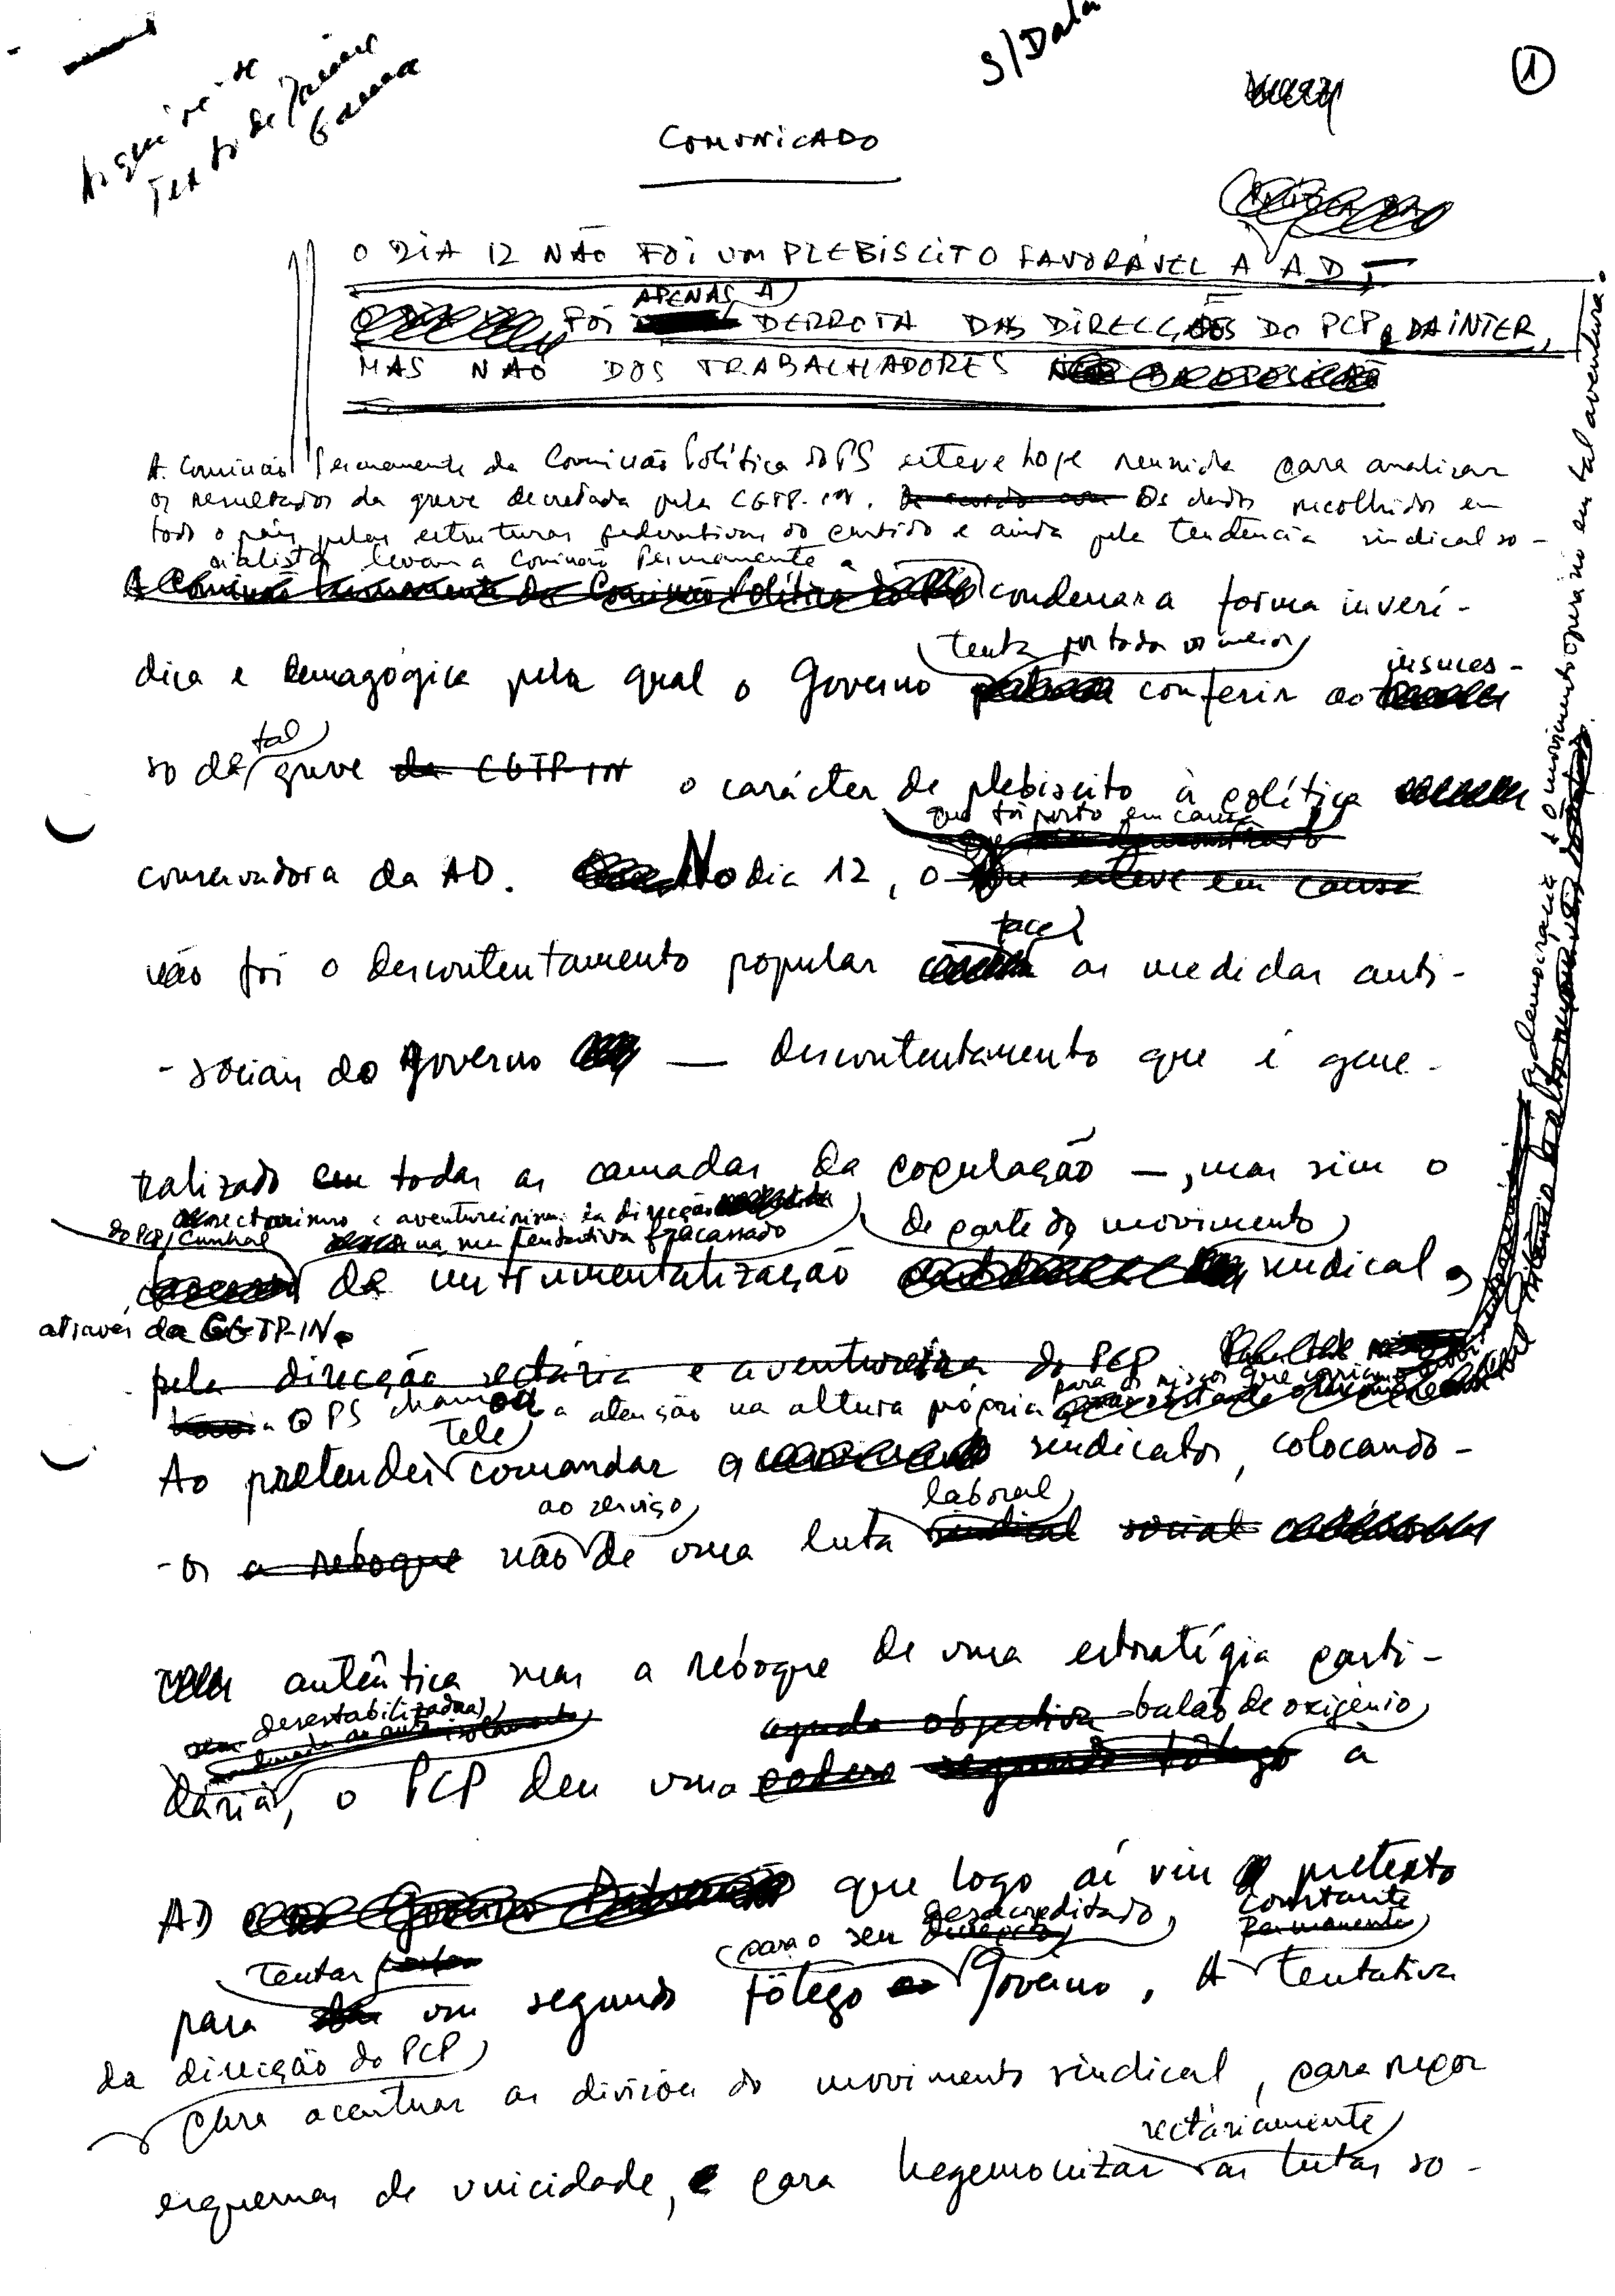 S/Data
1
Arquive-se
Texto de Jaime
Gama
COMUNICADO
O DIA 12 NÃO FOI UM PLEBISCITO FAVORÁVEL À AD,
FOI APENAS A DERROTA DAS DIRECÇÕES DO PCP E DA INTER,
MAS NÃO DOS TRABALHADORES
A Comissão Permanente da Comissão Política do PS esteve hoje reunida para analisar
os resultados da greve decretada pela CGTP-IN. De acordo com Os dados recolhidos em
todo o país pelas estruturas federativas do partido e ainda pela tendência sindical so-
cialista levam a Comissão Permanente a
A Comissão Permanente da Comissão Política do PS condenar a forma inverí-
tenta por todos os meios
dica e demagógica pela qual o Governo conferir ao insuces-
so de tal greve da CGTP-IN o carácter de plebiscito à política
que foi posto em causa
conservadora da AD. No dia 12, o que esteve em causa
não foi o descontentamento popular face às medidas anti-
-sociais do Governo — descontentamento que é gene-
ralizado em todas as camadas da população —, mas sim o
sectarismo e aventureirismo da direcção
do PCP/Cunhal na sua tentativa fracassada de parte do movimento
de instrumentalização sindical,
através da CGTP-IN.
pela direcção sectária e aventureira do PCP
O PS chamou a atenção na altura própria para os riscos que corriam
a democracia e o movimento operário em tal aventura.
Ao pretender tele comandar sindicatos, colocando-
-os a reboque não ao serviço de uma luta laboral sindical social
autêntica mas a reboque de uma estratégia parti-
desestabilizadora, ajuda objectiva balão de oxigénio
dária, o PCP deu uma à
AD que logo aí viu pretexto
para tentar um segundo fôlego para o seu desacreditado Governo. A constante permanente tentativa
da direcção do PCP
para acentuar as divisões do movimento sindical, para repor
esquemas de unicidade, e para hegemonizar sectáriamente as lutas so-